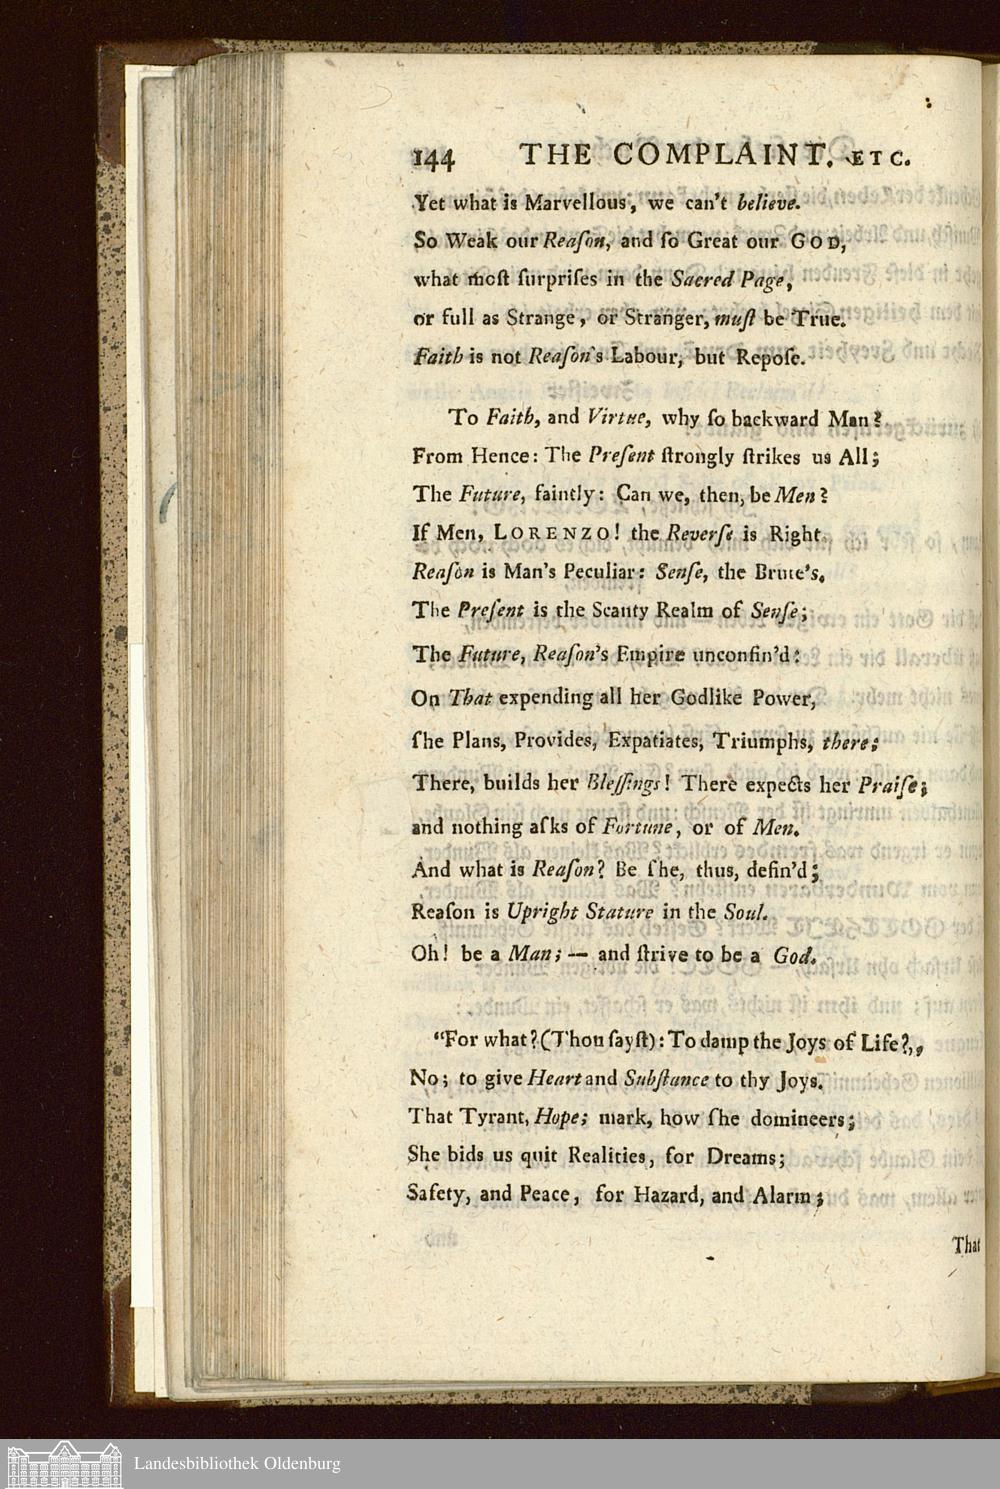 144 THE COMPLAINT. ETC.
Yet what is Marvellous, we can't believe.
So Weak our Reaſon, and ſo Great our GOD,
what moſt ſurpriſes in the Sacred Page,
or full as Strange, or Stranger, muſt be True.
Faith is not Reaſon's Labour, but Repoſe.
To Faith, and Virtue, why ſo backward Man?
From Hence: The Preſent ſtrongly ſtrikes us All;
The Future, faintly: Can we, then, be Men?
If Men, LORENZO! the Reverſe is Right
Reaſon is Man's Peculiar: Senſe, the Brute's.
The Preſent is the Scanty Realm of Senſe;
The Future, Reaſon's Empire unconfin'd:
On That expending all her Godlike Power,
ſhe Plans, Provides, Expatiates, Triumphs, there;
There, builds her Bleſſings! There expects her Praiſe;
and nothing aſks of Fortune, or of Men.
And what is Reaſon? Be ſhe, thus, defin'd;
Reaſon is Upright Stature in the Soul.
Oh! be a Man; — and ſtrive to be a God.
“For what? (Thou ſayſt): To damp the Joys of Life?„
No; to give Heart and Subſtance to thy Joys.
That Tyrant, Hope; mark, how ſhe domineers;
She bids us quit Realities, for Dreams;
Safety, and Peace, for Hazard, and Alarm;
That
Landesbibliothek Oldenburg